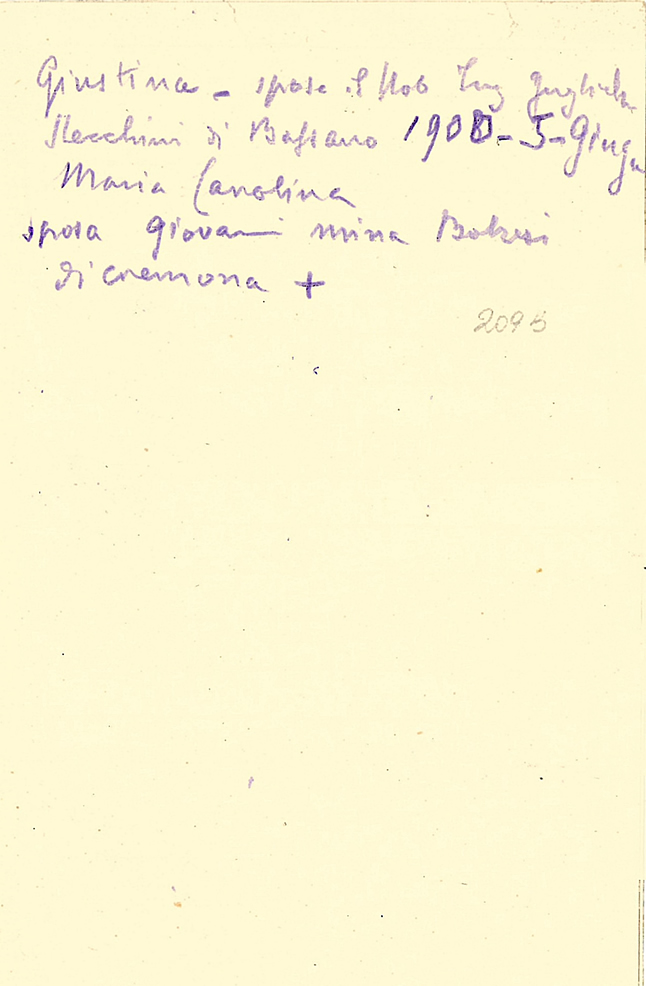 Giustina - sposa il Nob Ing Guglielm
Recchini di Bassano 1900 - 5 - Giug
Maria Carolina
sposa Giovanni mina Bolzesi
di cremona +
2095